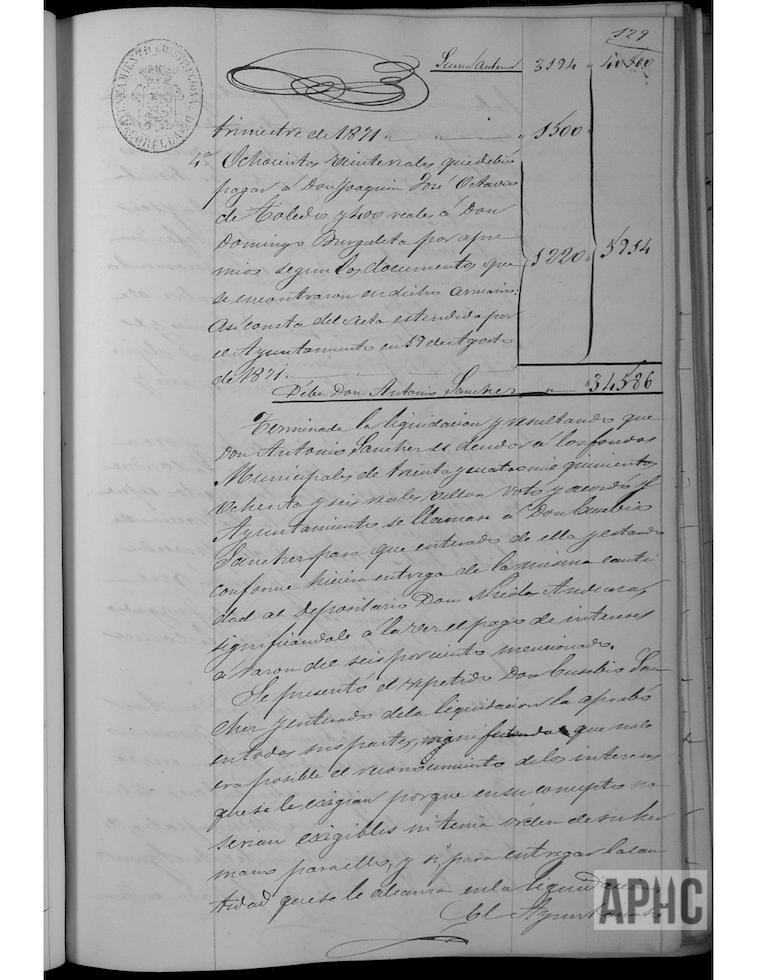 129
Suma anterior 3194 " 40500
trimestre de 1871 " " " 1500 "
4º Ochocientos veinte reales que debió
pagar á Don Joaquin José Octavio
de Toledo y 400 reales á Don
Domingo Burgaleta por apre
mios segun los documentos que 1220 " 5914
se encontraron en dicho armario:
Así consta del acta estendida por
el Ayuntamiento en 19 de Agosto
de 1871.
Débe Don Antonio Sanchez " 34586
Terminada la liquidacion y resultando que
Don Antonio Sanchez es deudor á los fondos
Municipales de treinta y cuatro mil quinientos
ochenta y seis reales vellon votó y acordó el
Ayuntamiento se llamase á Don Eusebio
Sanchez para que enterado de ella y estando
conforme hiciera entrega de la misma canti
dad al Depositario Don Nicolas
significandole á la vez el pago de intereses
á razon del seis por ciento mencionado.
Se presentó el repetido Don Eusebio San
chez y enterado de la liquidacion la aprobó
en todas sus partes, manifestando que no le
era posible el reconocimiento de los intereses
que se le exigian porque en su concepto no
serian exigibles ni tenia orden de su her
mano para ello, y si, para entregar la can
tidad que se le alcanza en la liquidacion
El Ayuntamiento
APHC